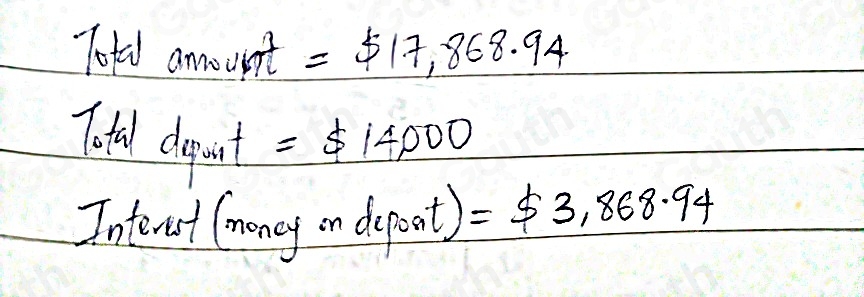 Total amount = $17,868.94
Total deposit = $14,000
Interest (money on deposit) = $3,868.94